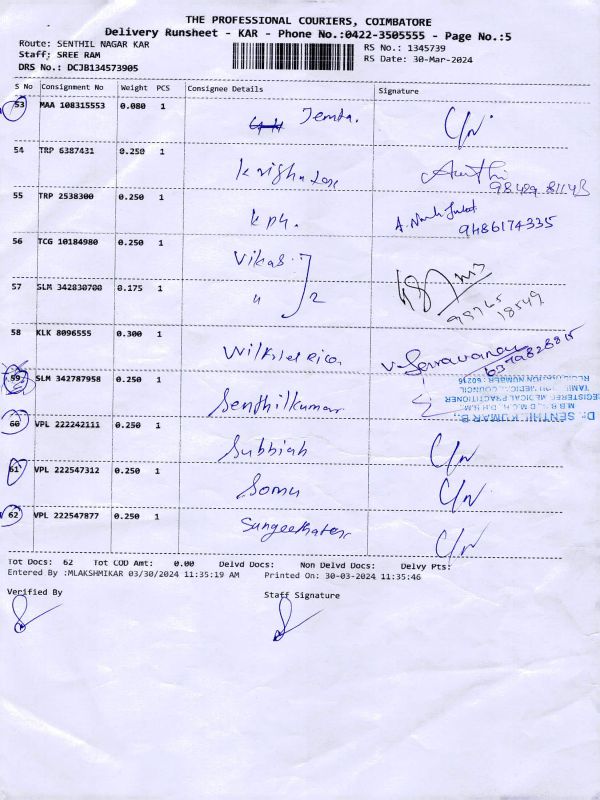 THE PROFESSIONAL COURIERS, COIMBATORE
Delivery Runsheet - KAR - Phone No.:0422-3505555 - Page No.:5
Route: SENTHIL NAGAR KAR
Staff: SREE RAM
DRS No.: DCJB134573905
RS No.: 1345739
RS Date: 30-Mar-2024
S No Consignment No Weight PCS Consignee Details Signature
53 MAA 108315553 0.080 1 C/N
54 TRP 6387431 0.250 1
98429 81143
55 TRP 2538300 0.250 1 kph.
9486174335
56 TCG 10184980 0.250 1 Vikas
57 SLM 342830700 0.175 1 " 2
98765
18549
58 KLK 8096555 0.300 1 V. Saravanan
59 SLM 342787958 0.250 1 Senthilkumar
Dr. SENTHIL KUMAR B.
REGISTERED MEDICAL PRACTITIONER
60 VPL 222242111 0.250 1 Subbiah C/N
61 VPL 222547312 0.250 1 Somu C/N
62 VPL 222547877 0.250 1 C/N
Tot Docs: 62 Tot COD Amt: 0.00 Delvd Docs: Non Delvd Docs: Delvy Pts:
Entered By :MLAKSHMIKAR 03/30/2024 11:35:19 AM Printed On: 30-03-2024 11:35:46
Verified By Staff Signature